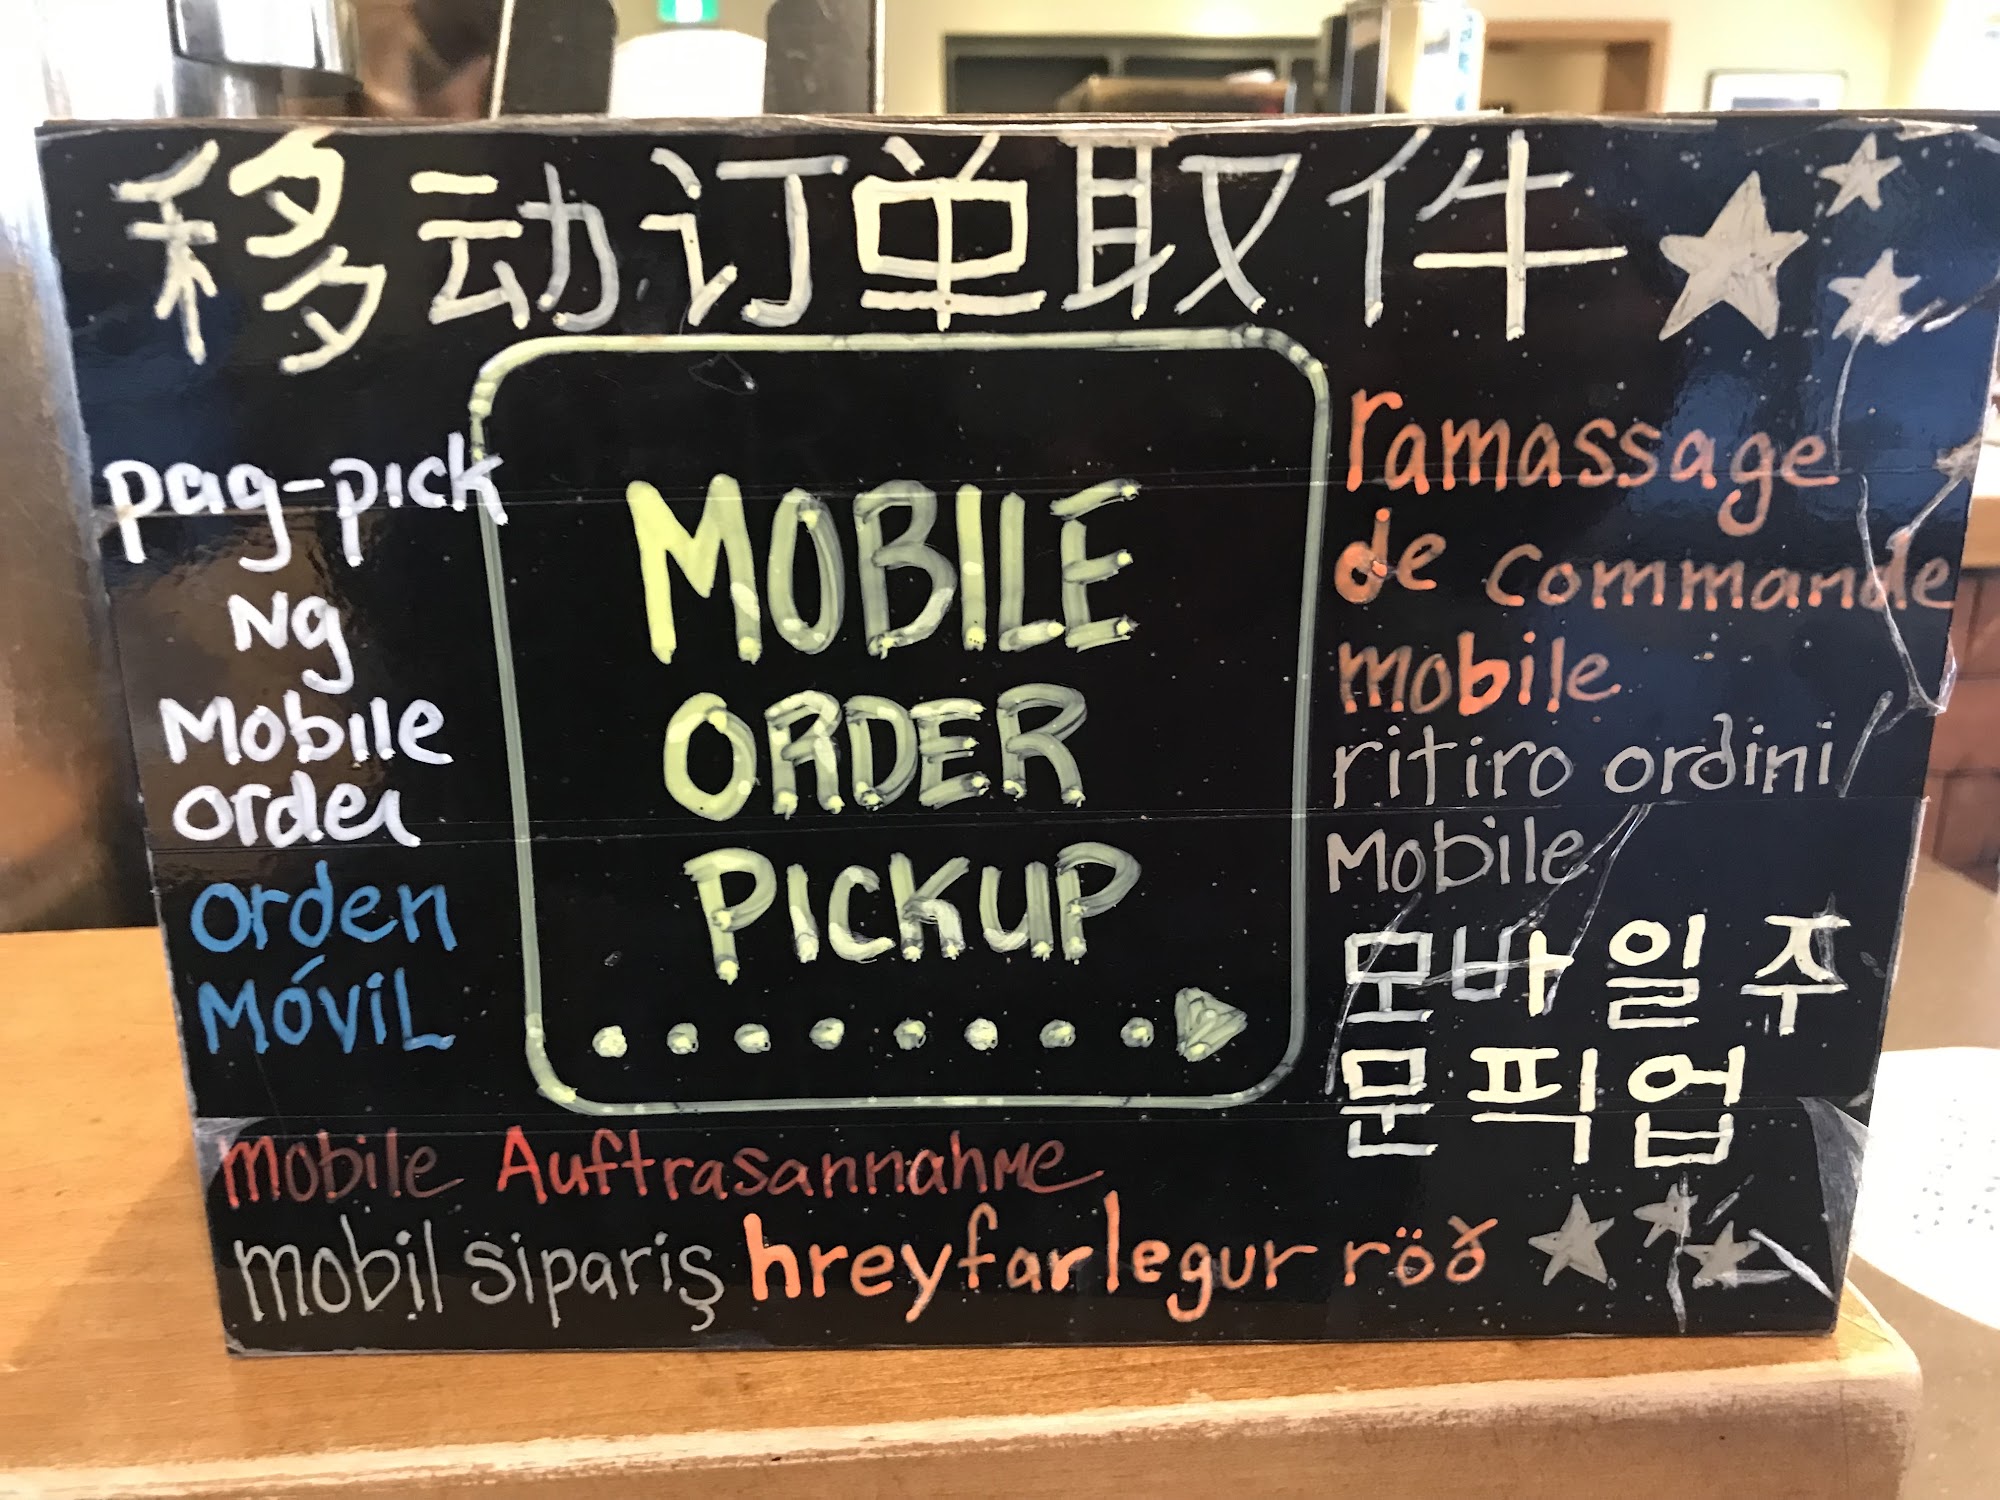 移动订单取件
pag-pick
ng
Mobile
order
orden
móvil
MOBILE
ORDER
PICKUP
ramassage
de commande
mobile
ritiro ordini
Mobile
모바일주
문픽업
mobile Auftrasannahme
mobil sipariş hreyfarlegur röð